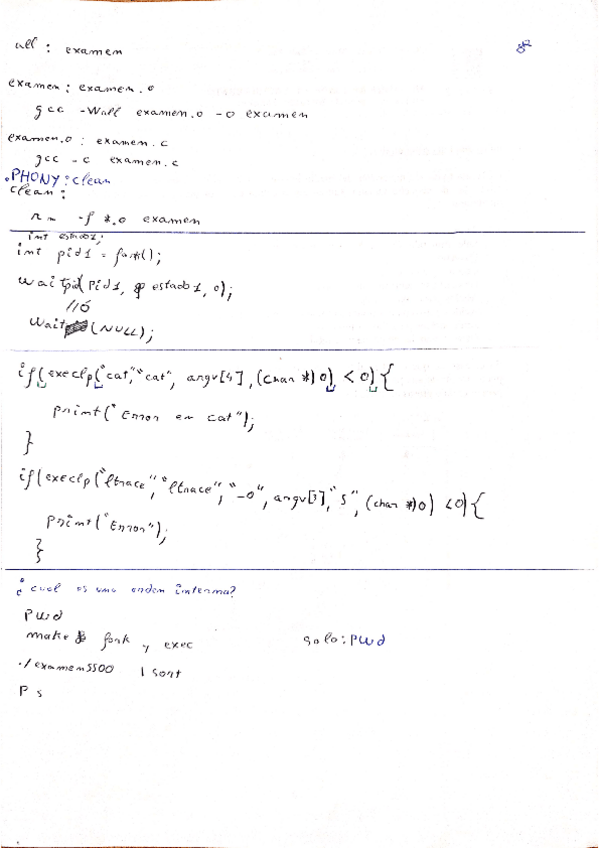 all : examen
examen : examen.o
gcc -Wall examen.o -o examen
examen.o : examen.c
gcc -c examen.c
.PHONY: clean
clean :
rm -f *.o examen
int estado1;
int pid1 = fork();
waitpid(pid1, & estado1, 0);
//ó
wait (NULL);
if(execlp("cat","cat", argv[4], (char *)0) < 0) {
print("Error en cat");
}
if(execlp("ltrace","ltrace", "-o", argv[3], "s", (char *)0) <0){
print("Error");
}
¿cual es una orden interna?
pwd
make fork y exec solo: pwd
./examen5500 | sort
Ps